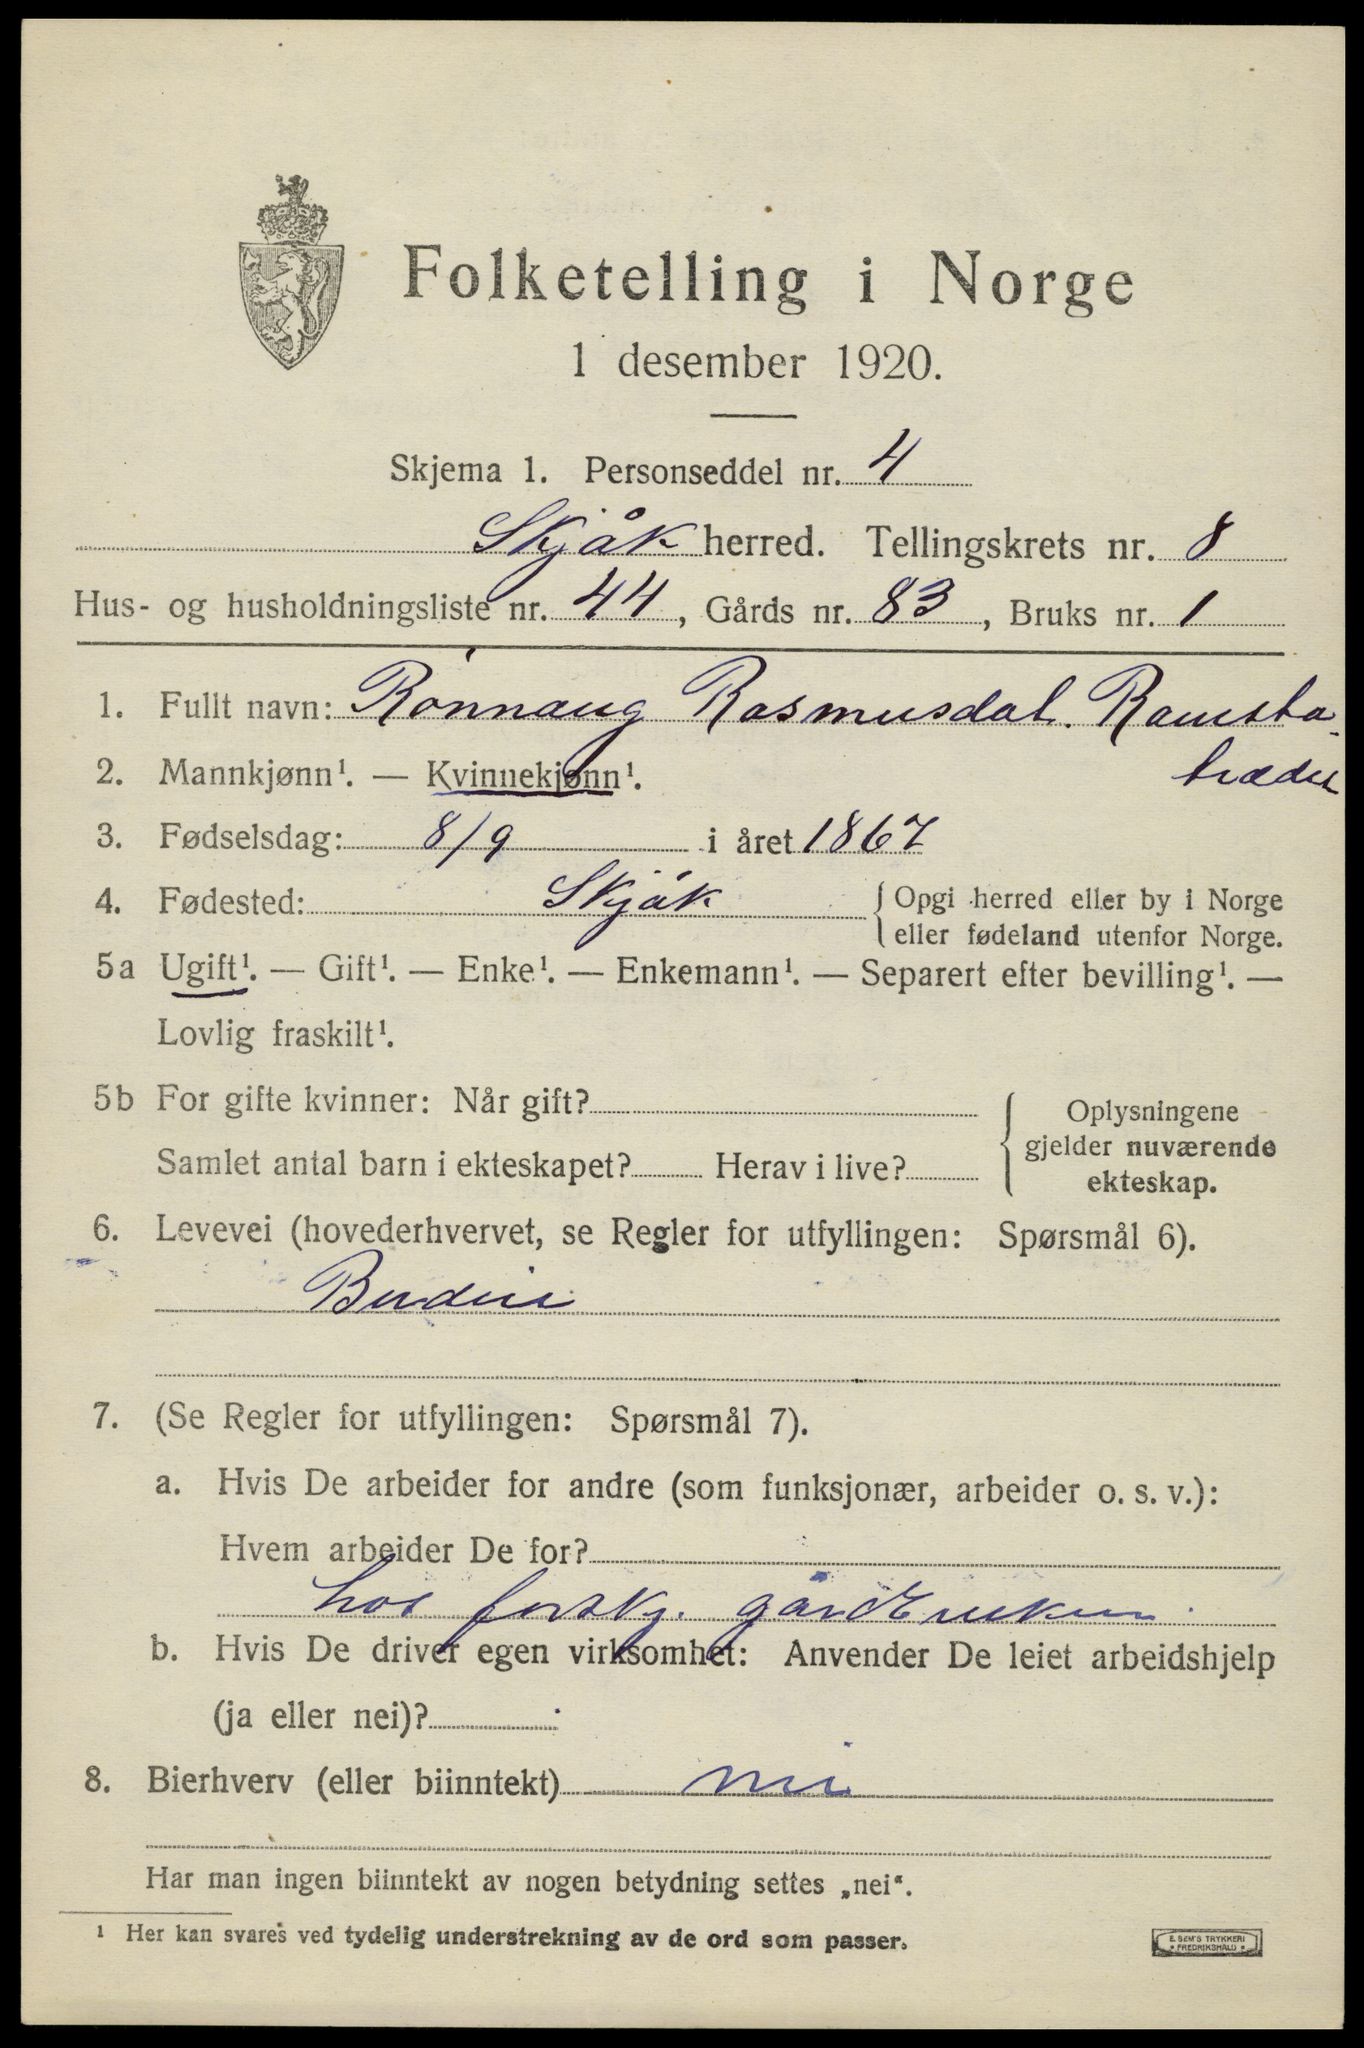 Folketelling i Norge
1 desember 1920.
Skjema 1. Personseddel nr. 4
Skjåk herred. Tellingskrets nr. 8
Hus- og husholdningsliste nr. 44, Gårds nr. 83, Bruks nr. 1
1. Fullt navn: Rønnaug Rasmusdat.
2. Mannkjønn¹. — Kvinnekjønn¹.
3. Fødselsdag: 8/9 i året 1867
4. Fødested: Skjåk { Opgi herred eller by i Norge
eller fødeland utenfor Norge.
5a Ugift¹. — Gift¹. — Enke¹. — Enkemann¹. — Separert efter bevilling¹. —
Lovlig fraskilt¹.
5b For gifte kvinner: Når gift?
Samlet antal barn i ekteskapet? Herav i live?
Oplysningene
gjelder nuværende
ekteskap.
6. Levevei (hovederhvervet, se Regler for utfyllingen: Spørsmål 6).
Budeie
7. (Se Regler for utfyllingen: Spørsmål 7).
a. Hvis De arbeider for andre (som funksjonær, arbeider o. s. v.):
Hvem arbeider De for?
hos forskj. gårdbrukere
b. Hvis De driver egen virksomhet: Anvender De leiet arbeidshjelp
(ja eller nei)?
8. Bierhverv (eller biinntekt) nei
Har man ingen biinntekt av nogen betydning settes „nei“.
¹ Her kan svares ved tydelig understrekning av de ord som passer.
E. SEM'S TRYKKERI
FREDRIKSHALD